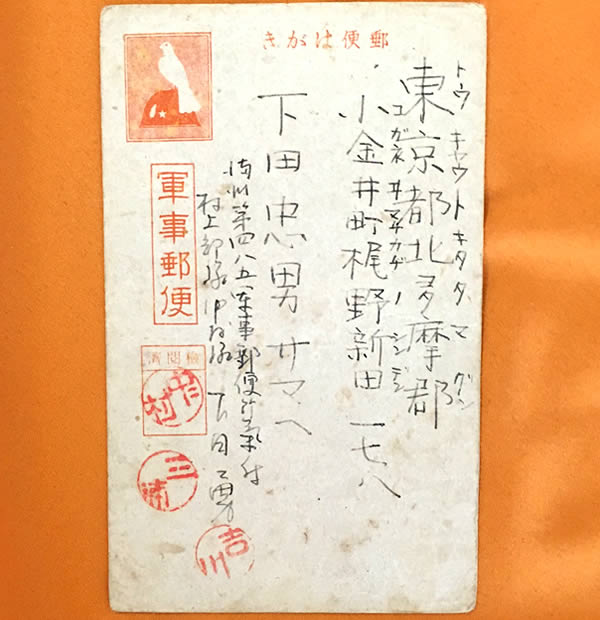 郵便はがき
トウキヤウトキタタマグン
東京都北多摩郡
コガネヰマチカヂノシンデン
小金井町梶野新田一七八
下田忠男サマヘ
満州第四八五軍事郵便所気付
村上部隊 下田勇
軍事郵便
検閲済
中村
三浦
吉川